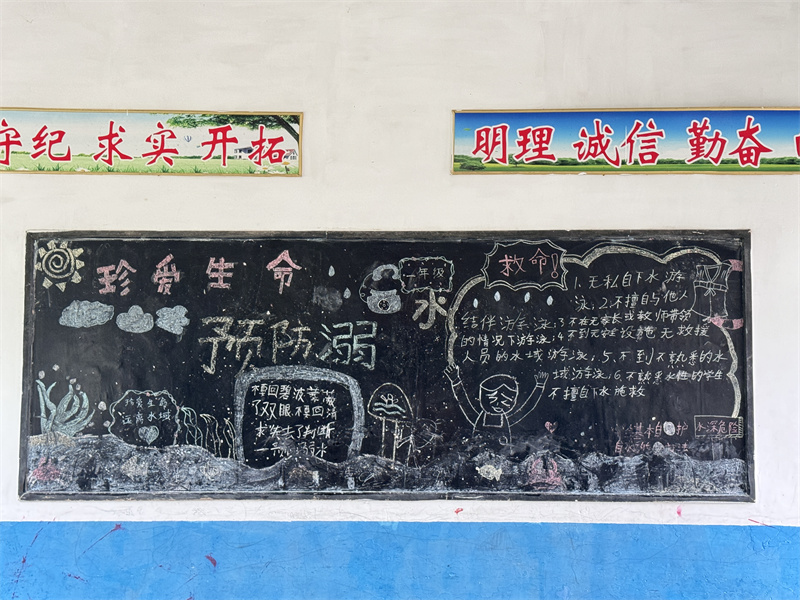 守纪 求实 开拓
明理 诚信 勤奋
珍爱生命
预防溺水
一年级
珍爱生命
远离水域
了双眼
求失去了判断
救命!
1.无私自下水游
泳;2.不擅自与他人
结伴游泳;3.不在无家长或教师带领
的情况下游泳;4.不到无安全设施无救援
人员的水域游泳;5.不到不熟悉的水
域游泳;6.不熟悉水性的学生
不擅自下水施救
水深危险